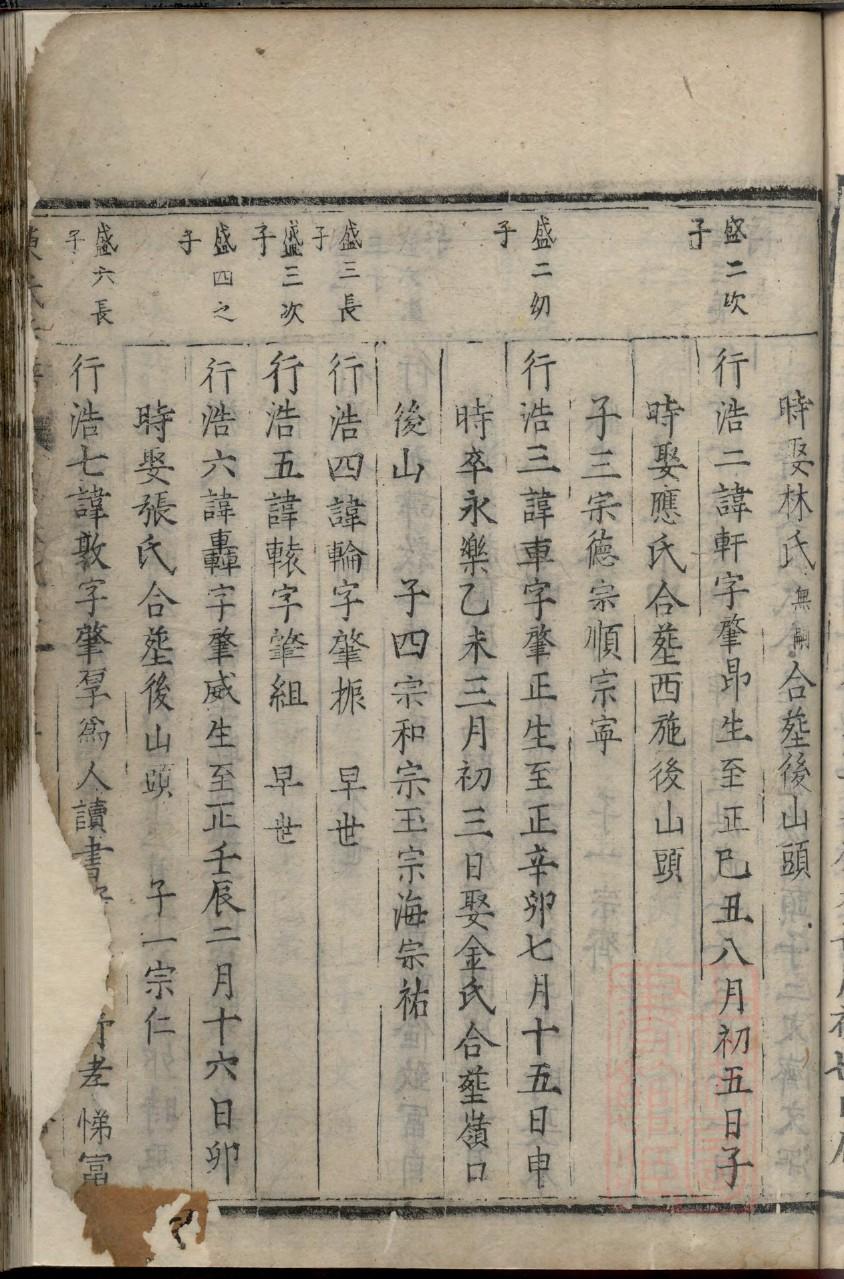 時娶林氏無嗣合塟後山頭
盛二次子
行浩二諱軒字肇昂生至正己丑八月初五日子
時娶應氏合塟西施後山頭
子三宗德宗順宗寧
盛二幼子
行浩三諱車字肇正生至正辛卯七月十五日申
時卒永樂乙未三月初三日娶金氏合塟嶺口
後山 子四宗和宗玉宗海宗祐
盛三長子
行浩四諱輪字肇振 早世
盛三次子
行浩五諱轅字肇組 早世
盛四之子
行浩六諱轟字肇威生至正壬辰二月十六日卯
時娶張氏合塟後山頭 子一宗仁
盛六長子
行浩七諱敦字肇厚爲人讀書 孝悌富